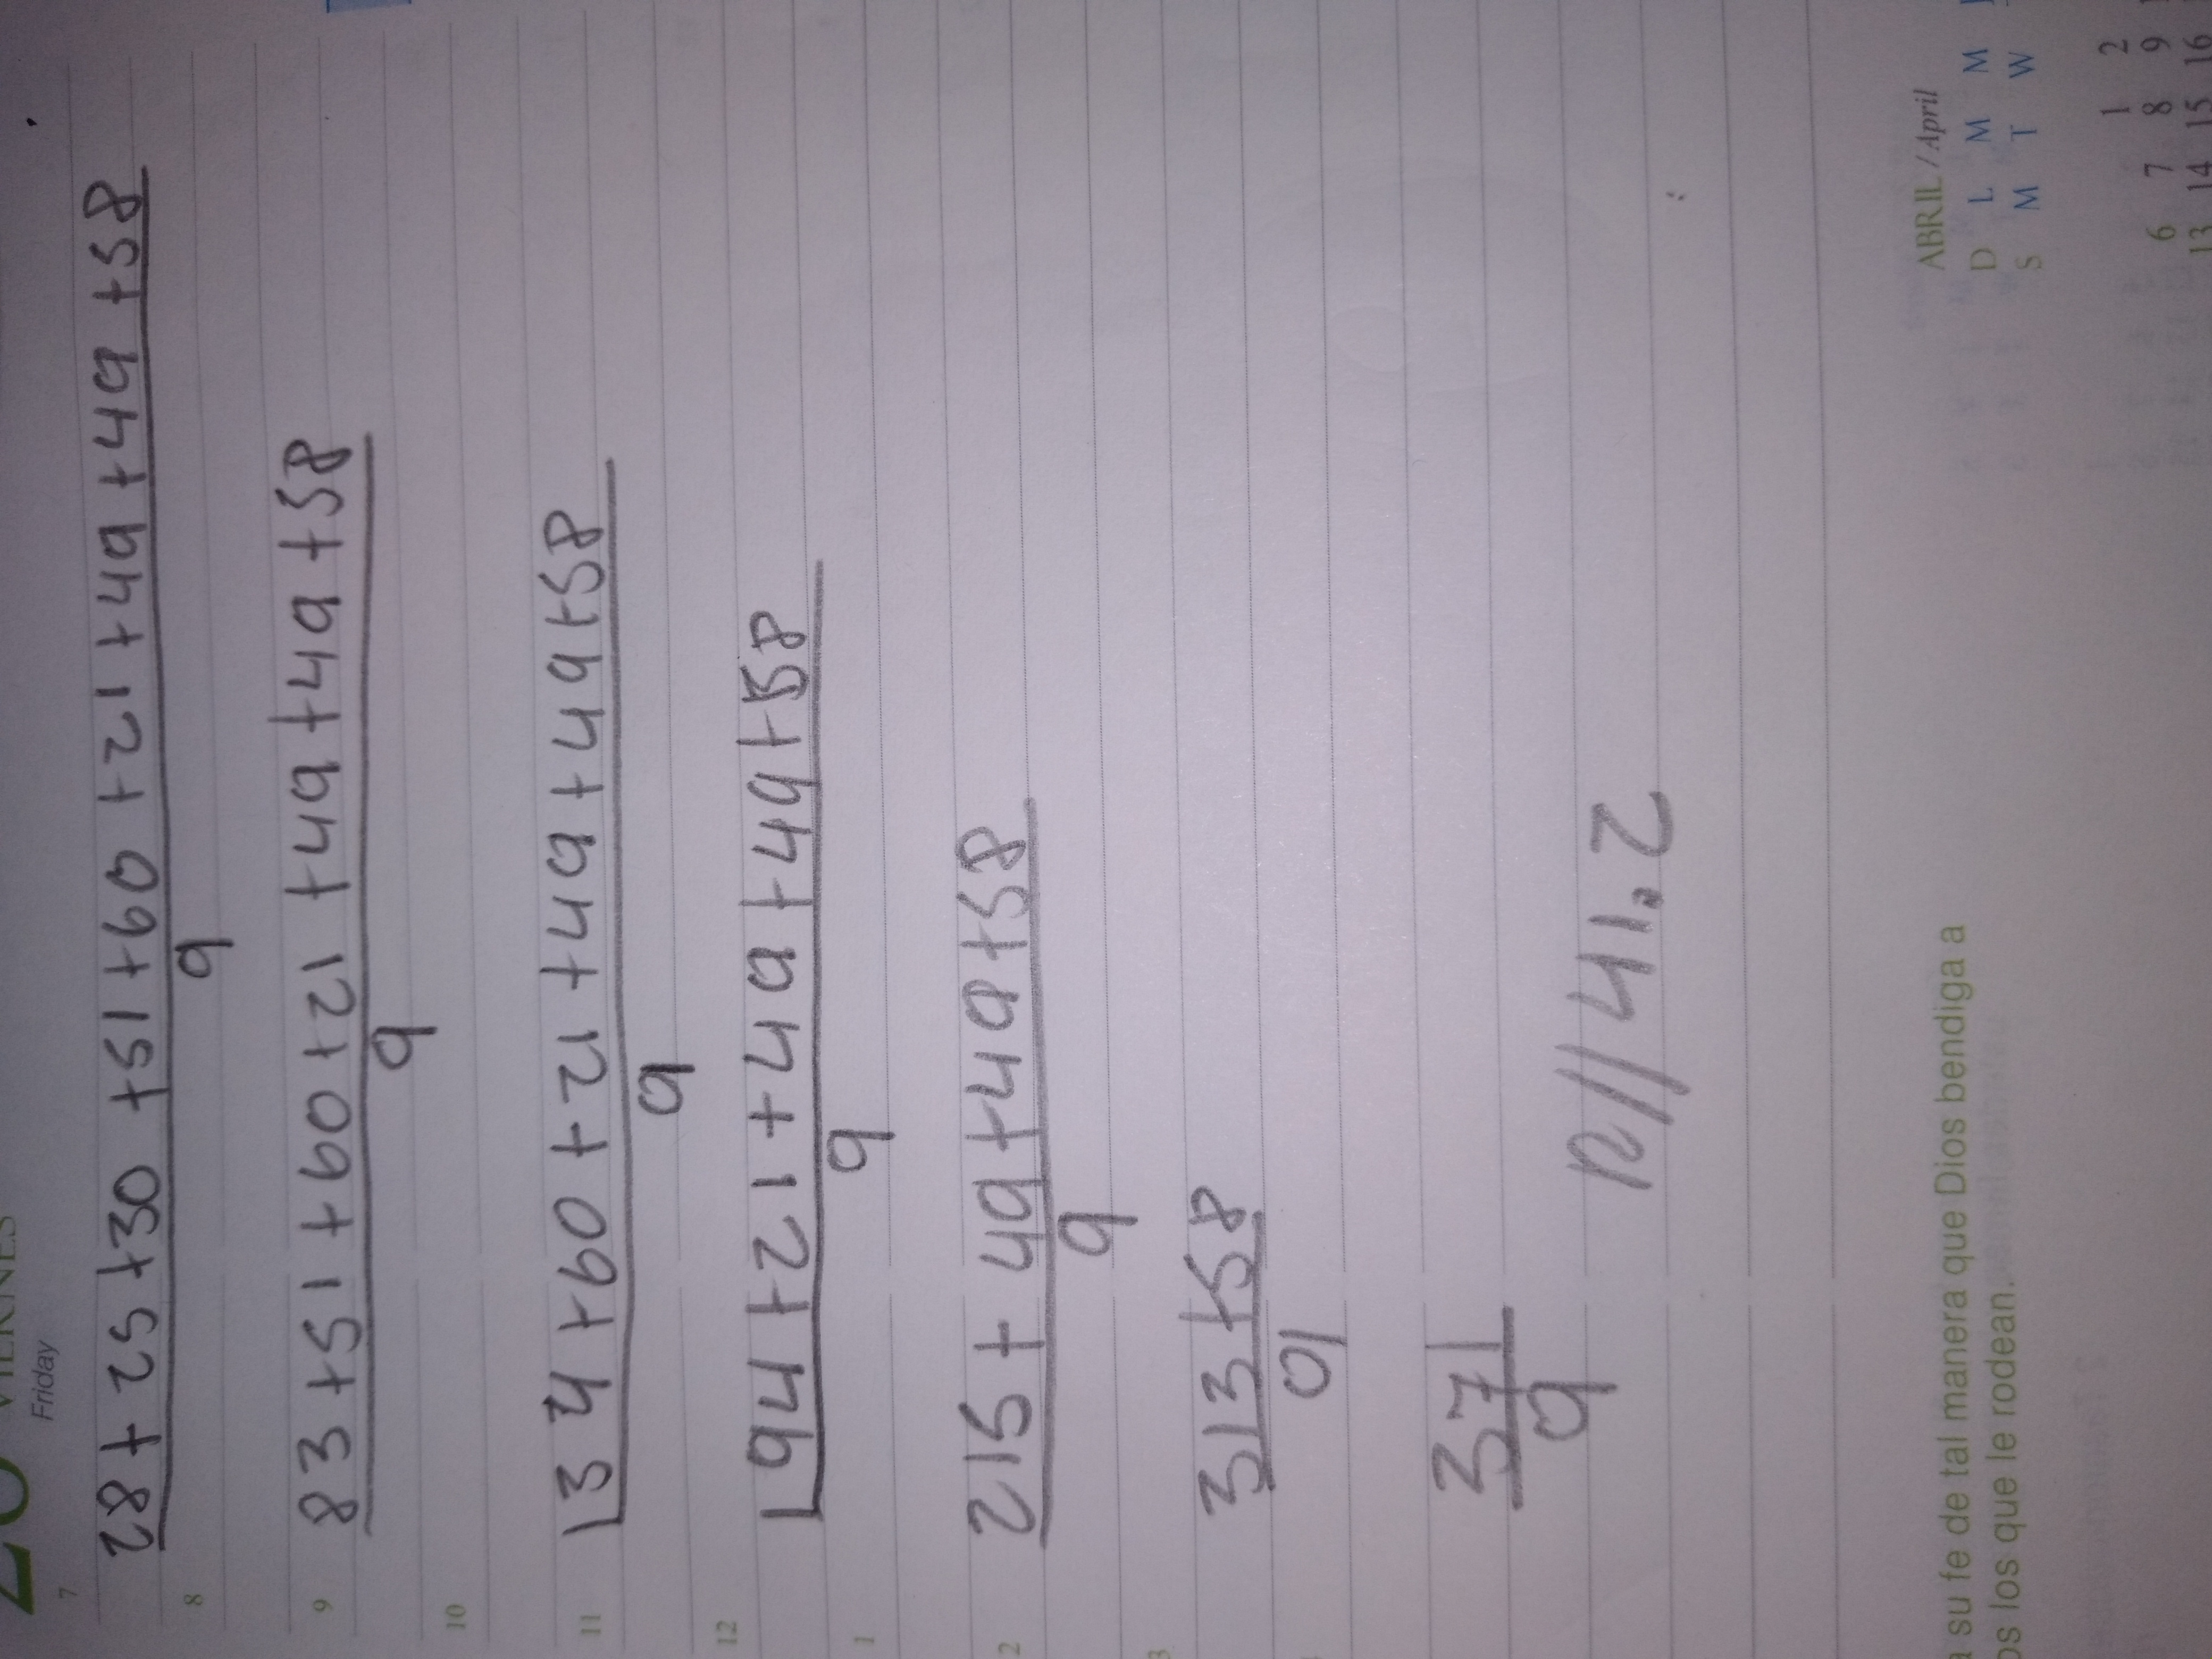 VIERNES
Friday
7
28+25+30+51+60+21+49+49+58
8
9
9
83+51+60+21+49+49+58
9
10
11
134+60+21+49+49+58
9
12
194+21+49+49+58
9
1
2
215+49+49+58
9
3
313+58
9
371
9
R//41,2
a su fe de tal manera que Dios bendiga a
os los que le rodean.
ABRIL / April
D L M M
S M T W
1 2
6 7 8 9
13 14 15 16